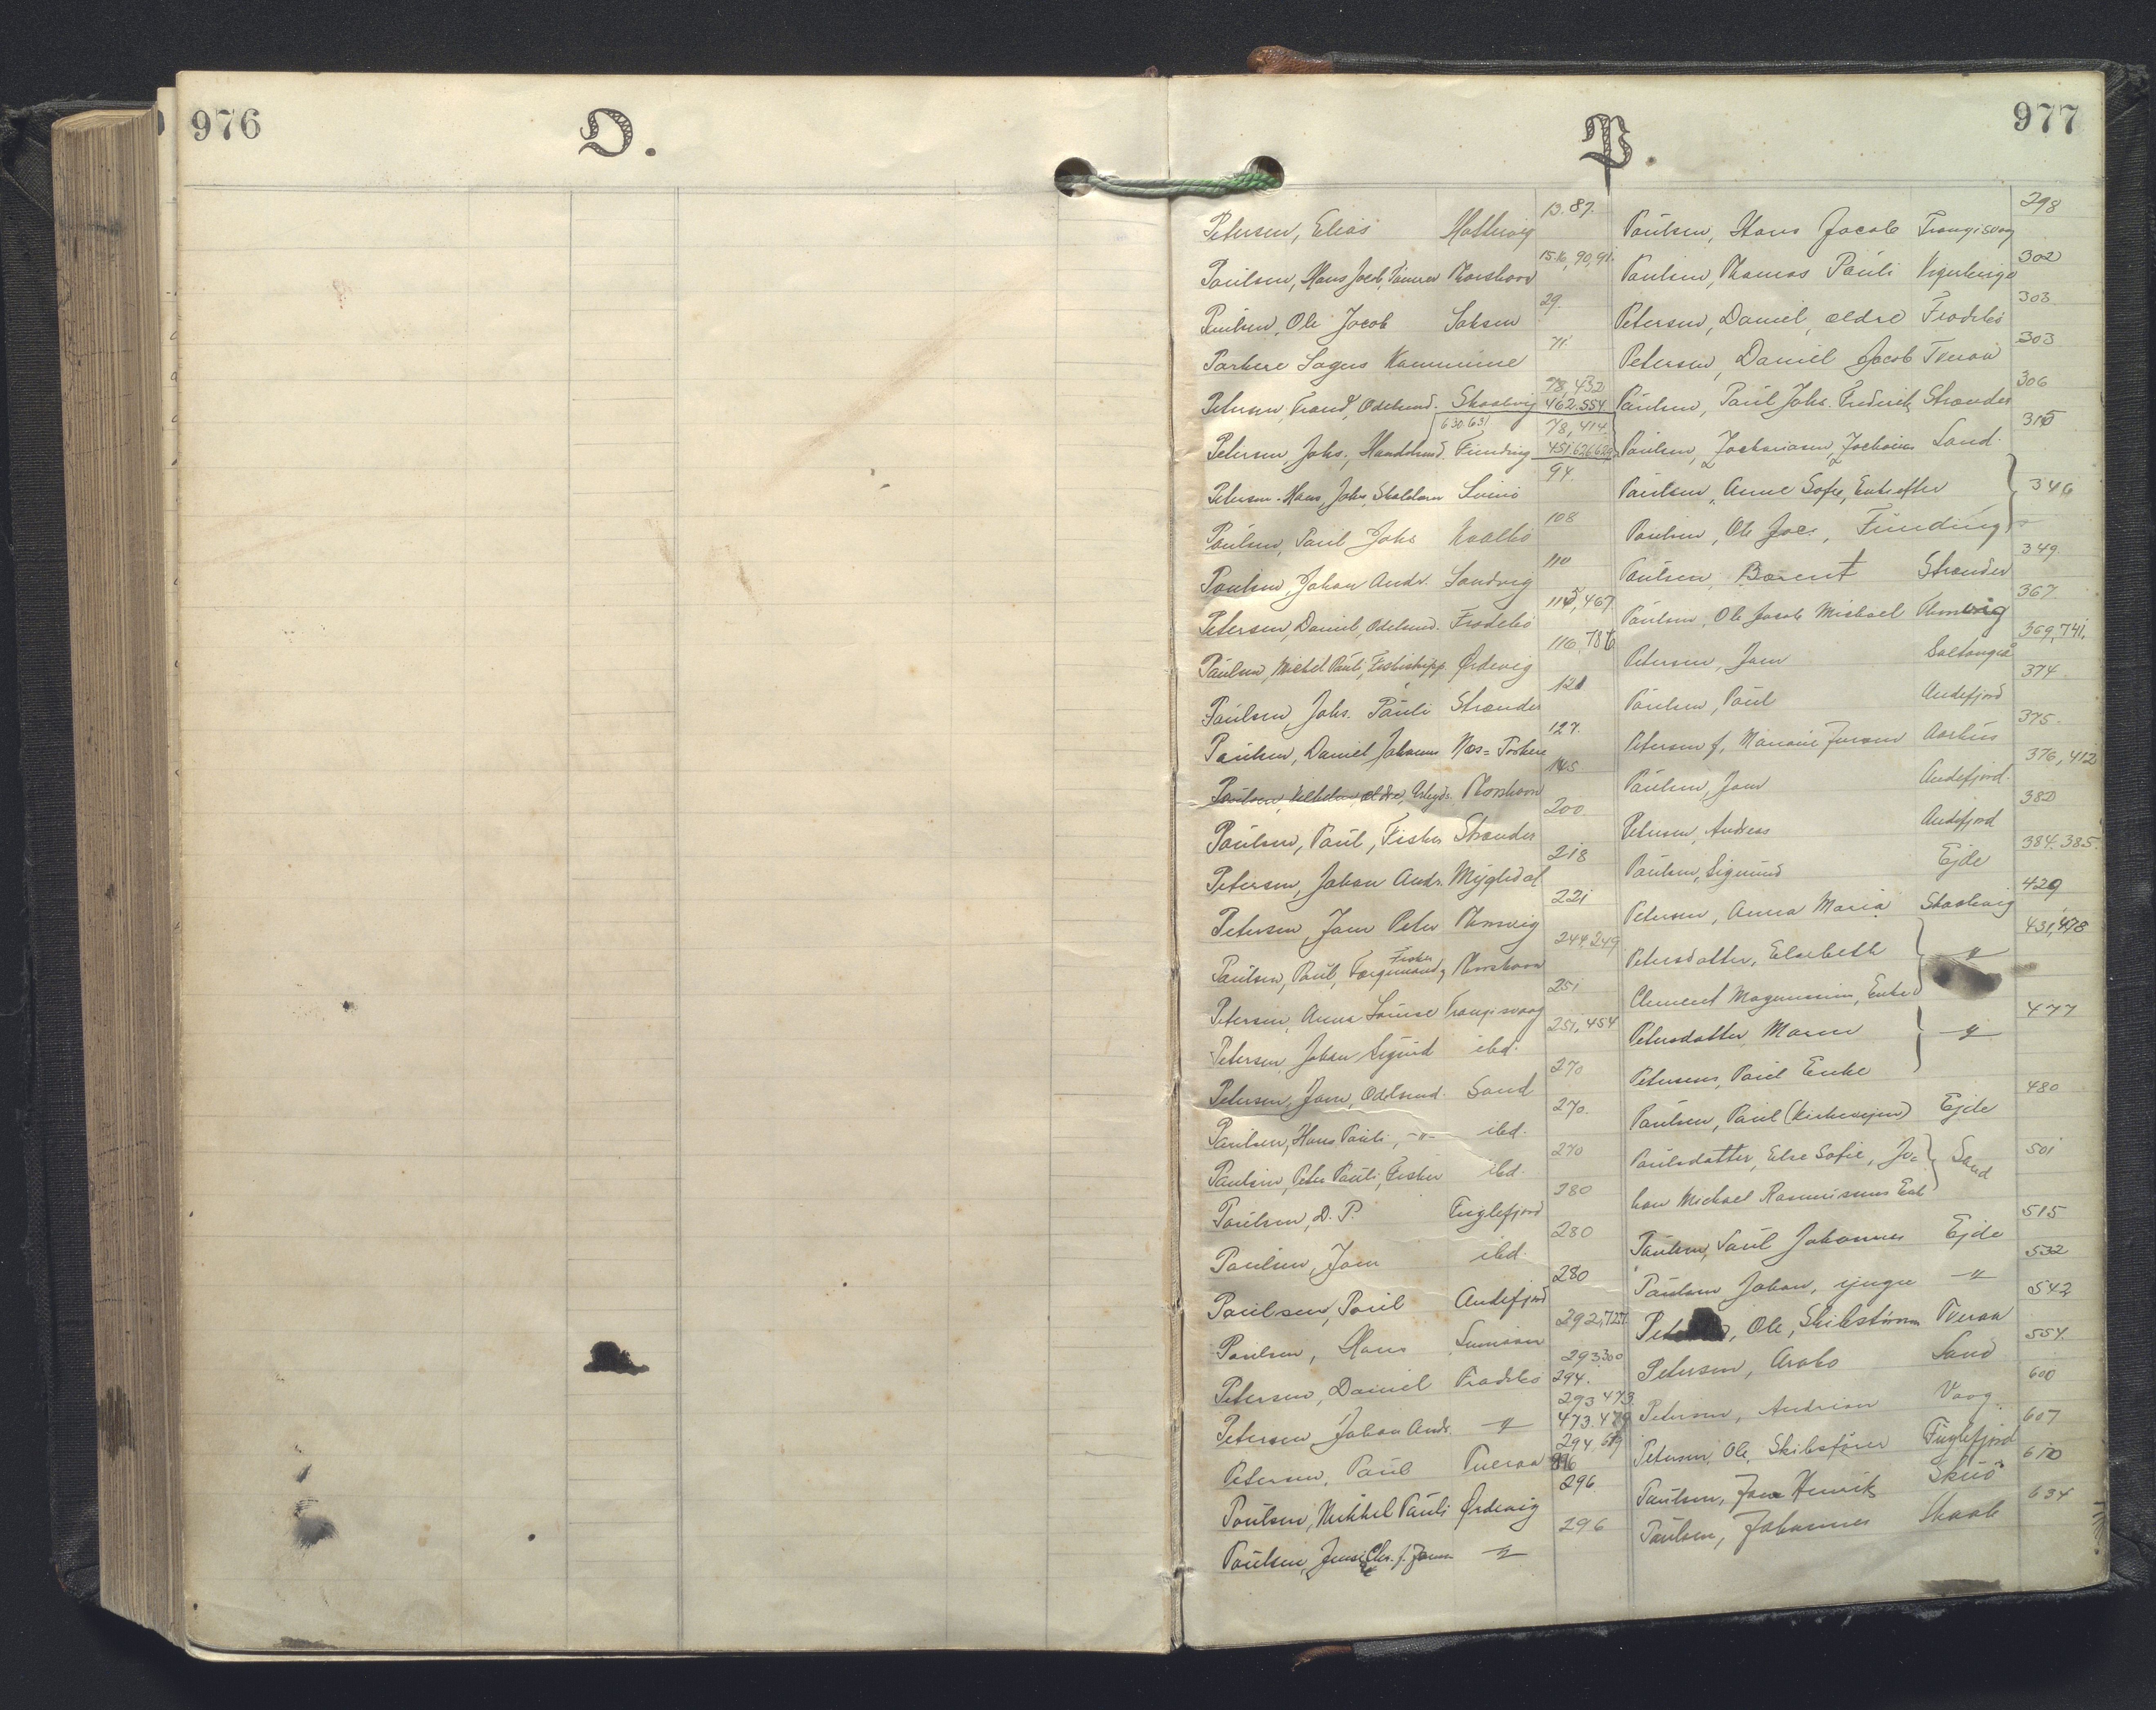 976
O.
977
P.
Petersen, Elias Hattervig 13. 87.
Paulsen, Hans Jacob, Tømrer Thorshavn 15. 16, 90, 91.
Paulsen, Ole Jacob Saksen 29.
Porkere Sogns Kommune 71.
Petersen, Trond, Odelsmd. Skaalevig 78, 432 462. 554
630. 631
Petersen, Johs., Handelsmd. Funding 78, 414. 451, 626
Petersen, Hans, Johs, Svinø 94.
Paulsen, Paul Johs Kvalbø 108
Paulsen, Johan Andr. Sandvig 110
Petersen, Daniel, Odelsmd. Frodebø 467.
Paulsen, Michel Pauli, Fiskeskipp. Ørdevig 116, 786
Paulsen, Johs. Pauli Strænder 121
Paulsen, Daniel Johannes Næs = Porkere 127.
Paulsen, Vilhelm, ældre, Arbejds. Thorshavn 145
Paulsen, Paul, Fisker Strænder 200.
Petersen, Johan Andr. Mygledal 218
Petersen, Joen Peter Thorsvig 221
Paulsen, Paul, Færgemand, Fisker Thorshavn 244, 249
Petersen, Anna Louise Trangisvaag 251
Petersen, Johan Sigurd ibd. 251, 454
Petersen, Joen, Odelsmd. Sand 270
Paulsen, Hans Pauli, -"- ibd. 270.
Paulsen, Peter Pauli, Fisker ibd. 270
Paulsen, D. P. Fuglefjord 280
Paulsen, Joen ibd. 280
Paulsen, Poul Andefjord 280
Paulsen, Hans Sumbøe 292, 727
Petersen, Daniel Frodebø 293 300 294.
Petersen Johan Andr. -"- 293 473. 473. 479
Petersen, Paul Tveraa 294, 619 296
Poulsen, Mikkel Pauli Ørdevig 296.
Poulsen, Jens Chr. f. Joen -"- 296
Paulsen, Hans Jacob Trangisvaag 298
Paulsen, Thomas Pauli Vigerbirge 302
Petersen, Daniel, ældre Frodebø 303.
Petersen, Daniel Jacob Tveraa 303
Paulsen, Paul Johs. Frederik Strænder 306
Paulsen, Zachariasen, Joachim Sand. 315
Paulsen, Anne Sofie, Enke efter
Paulsen, Ole Jac., Funding } 346
Paulsen, Barent Strænder 349.
Paulsen, Ole Jacob Michael Thorsvig 367.
Petersen, Joen Saltangeå 369, 741.
Paulsen, Paul Andefjord 374.
Petersen f, Jensen Aarhus 375.
Paulsen, Joen Andefjord. 376, 412
Petersen, Andreas Andefjord 380
Paulsen, Sigmund Ejde 384. 385.
Petersen, Anna Maria Skaalevig 429
Petersdatter, Elsebeth
Clement Magnussens, Enke } -"- 431, 478
Petersdatter Maren
Petersens, Paul Enke } -"- 477
Paulsen, Paul (Kirkevejen) Ejde 480
Paulsdatter, Else Sofie, Jo=
han Michael Rasmussens Enk } Sand 501
Paulsen, Paul Johannes Ejde 515
Paulsen Johan, yngre -"- 532
Petersen, Ole, Skibstømrer Tveraa 542
Petersen, Arabo Sand 554.
Petersen, Andrias Vaag. 600
Petersen, Ole, Skibsfører Fuglefjord 607
Paulsen, Joen Henrik Skuø 610
Paulsen, Johannes Skaale 634